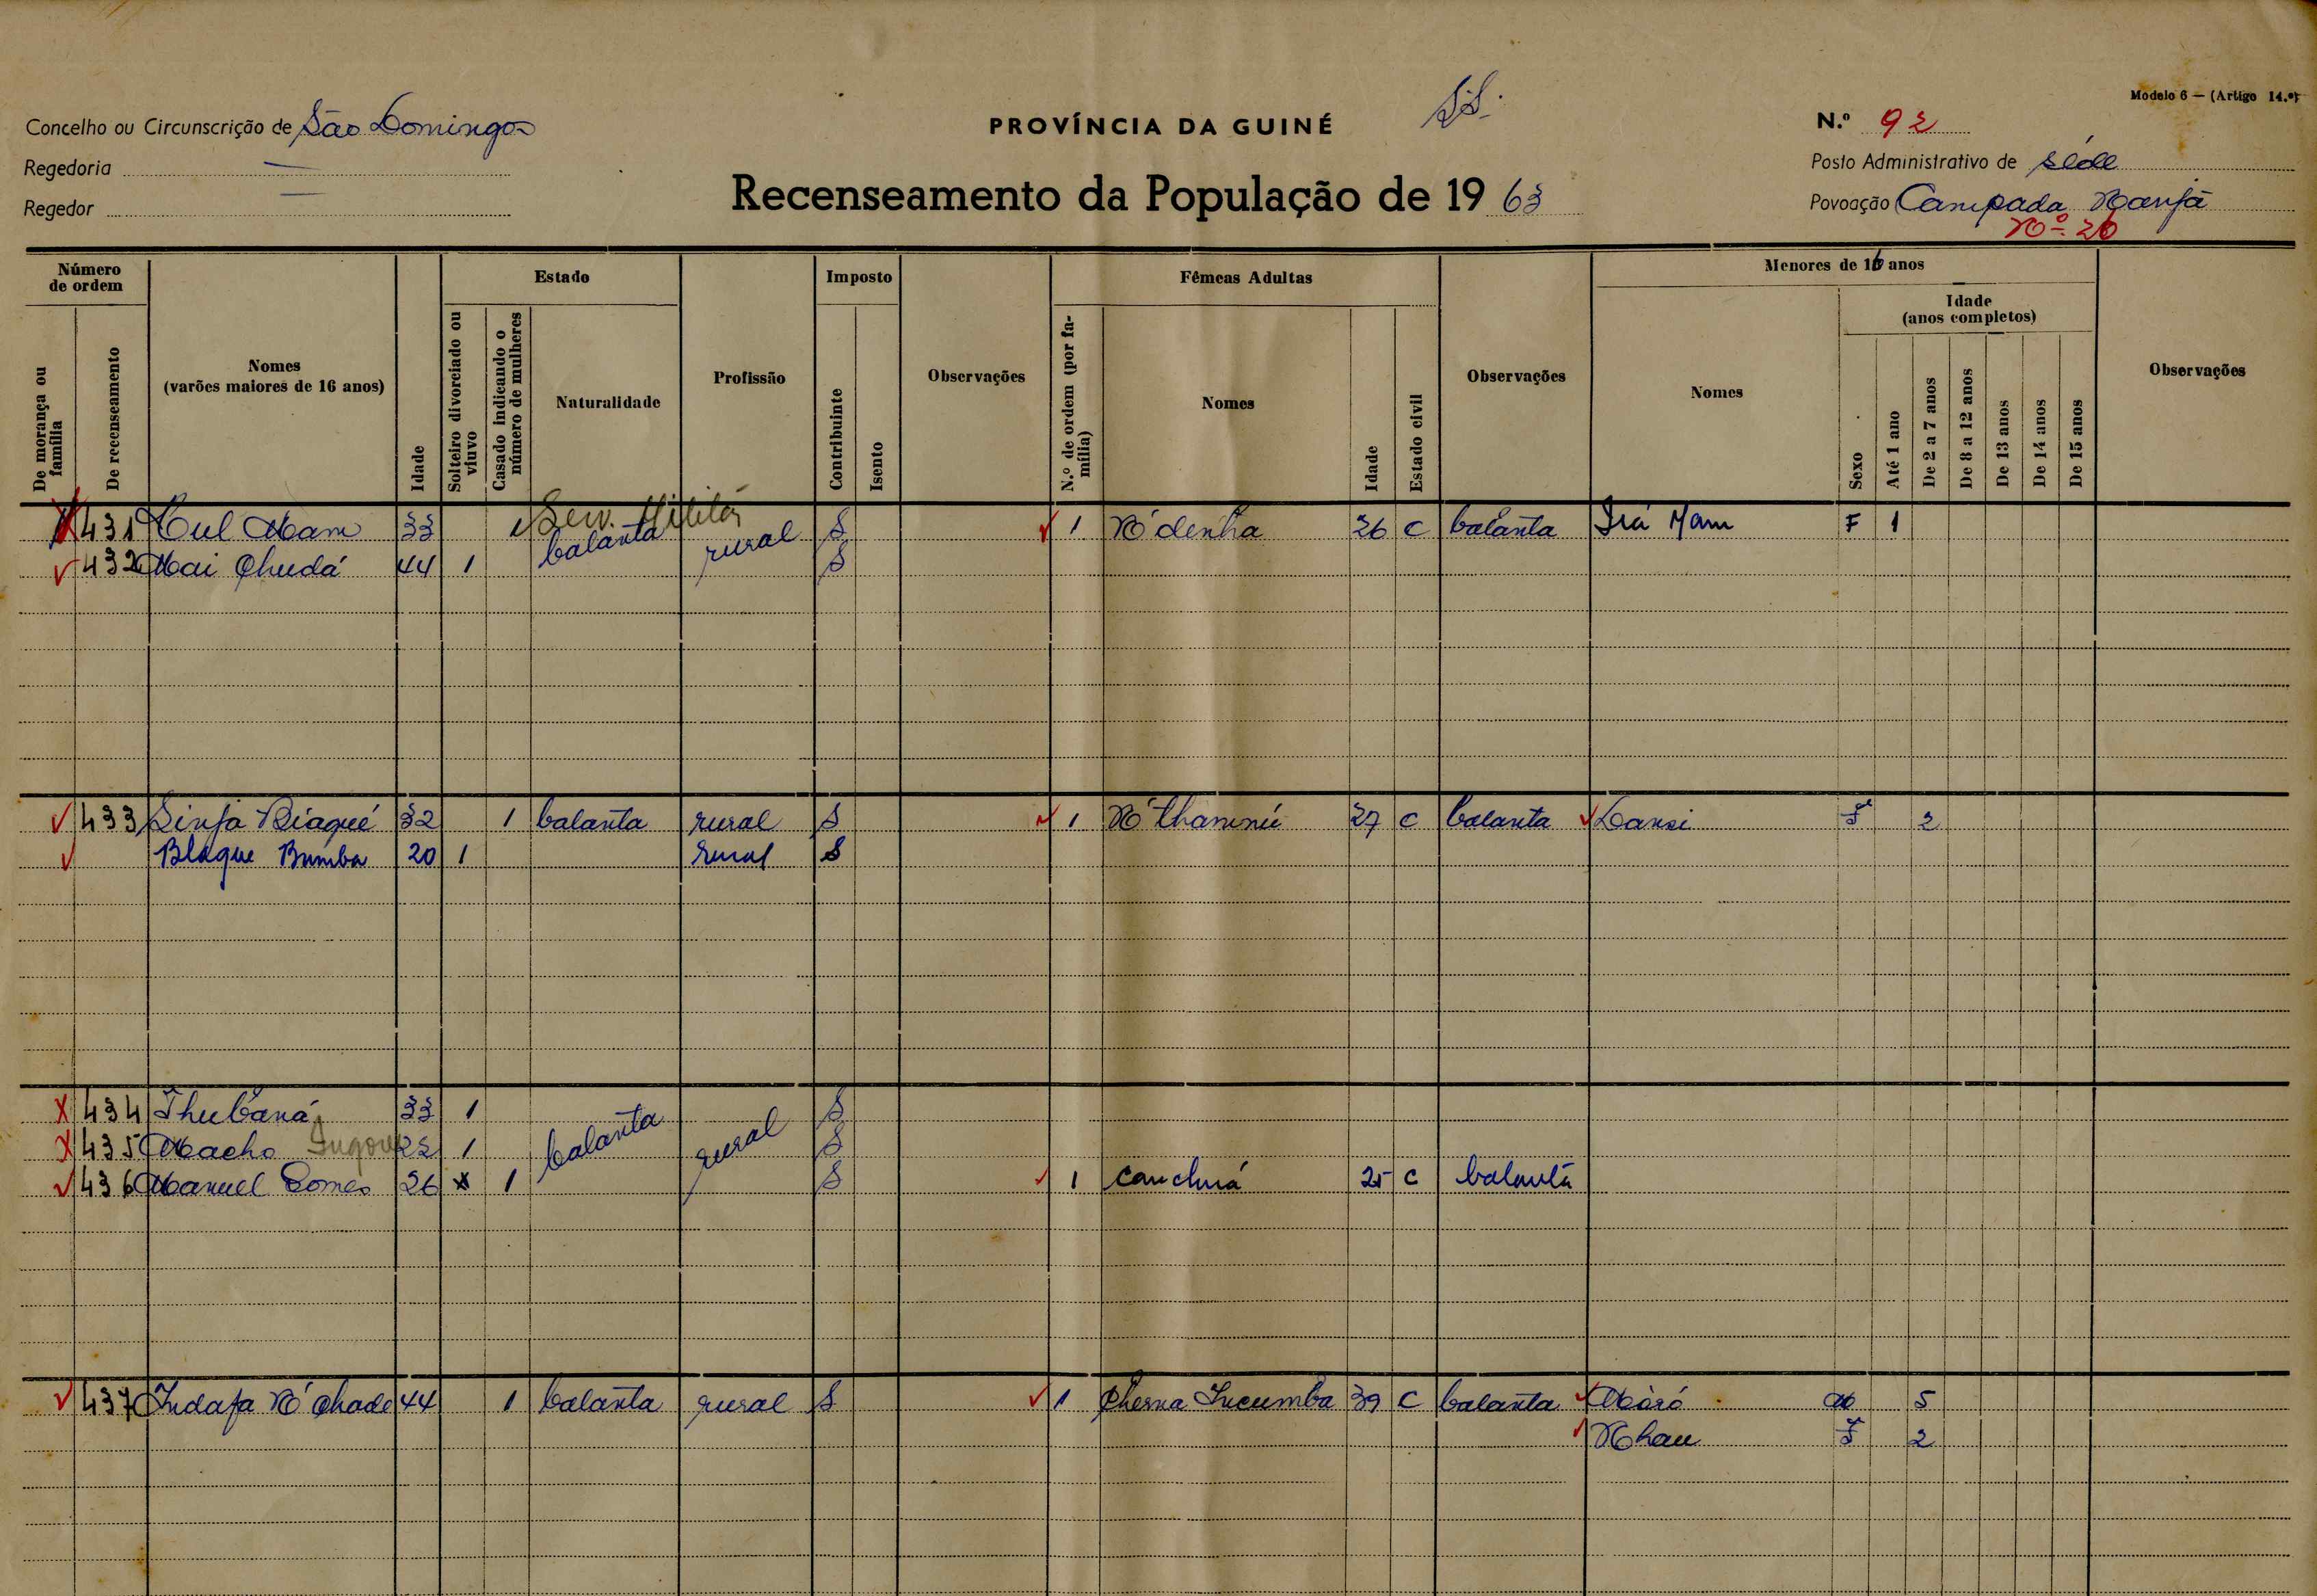 Modelo 6 — (Artigo 14.º)
Concelho ou Circunscrição de São Domingos
PROVÍNCIA DA GUINÉ
N.º 92
Regedoria —
Posto Administrativo de séde
Regedor —
Recenseamento da População de 1963
Povoação Campada Nanfá
Nº 26
Número de ordem
De morança ou família
De recenseamento
Nomes
(varões maiores de 16 anos)
Idade
Estado
Solteiro divorciado ou viuvo
Casado indicando o número de mulheres
Naturalidade
Profissão
Imposto
Contribuinte
Isento
Observações
Fêmeas Adultas
N.º de ordem (por família)
Nomes
Idade
Estado civil
Observações
Menores de 16 anos
Nomes
Sexo
Idade
(anos completos)
Até 1 ano
De 2 a 7 anos
De 8 a 12 anos
De 13 anos
De 14 anos
De 15 anos
Observações
Serv. Militar
431 Mam 33 1 balanta rural S 1 N'denha 26 C balanta Irá Mam F 1
432 Mai Chudá 44 1 S
433 Sinfa Biaqué 32 1 balanta rural S 1 N'thamnié 27 C balanta Dansi F 2
Blaque Bumba 20 1 rural S
434 Thubaná 33 1 balanta rural S
435 Macho 22 1 S
436 Manuel Gomes 26 x 1 S 1 Canchuá 25 C balanta
437 Indafa N'Chade 44 1 balanta rural S 1 Cherna Incumba 39 C balanta Máró M 5
Nhau F 2